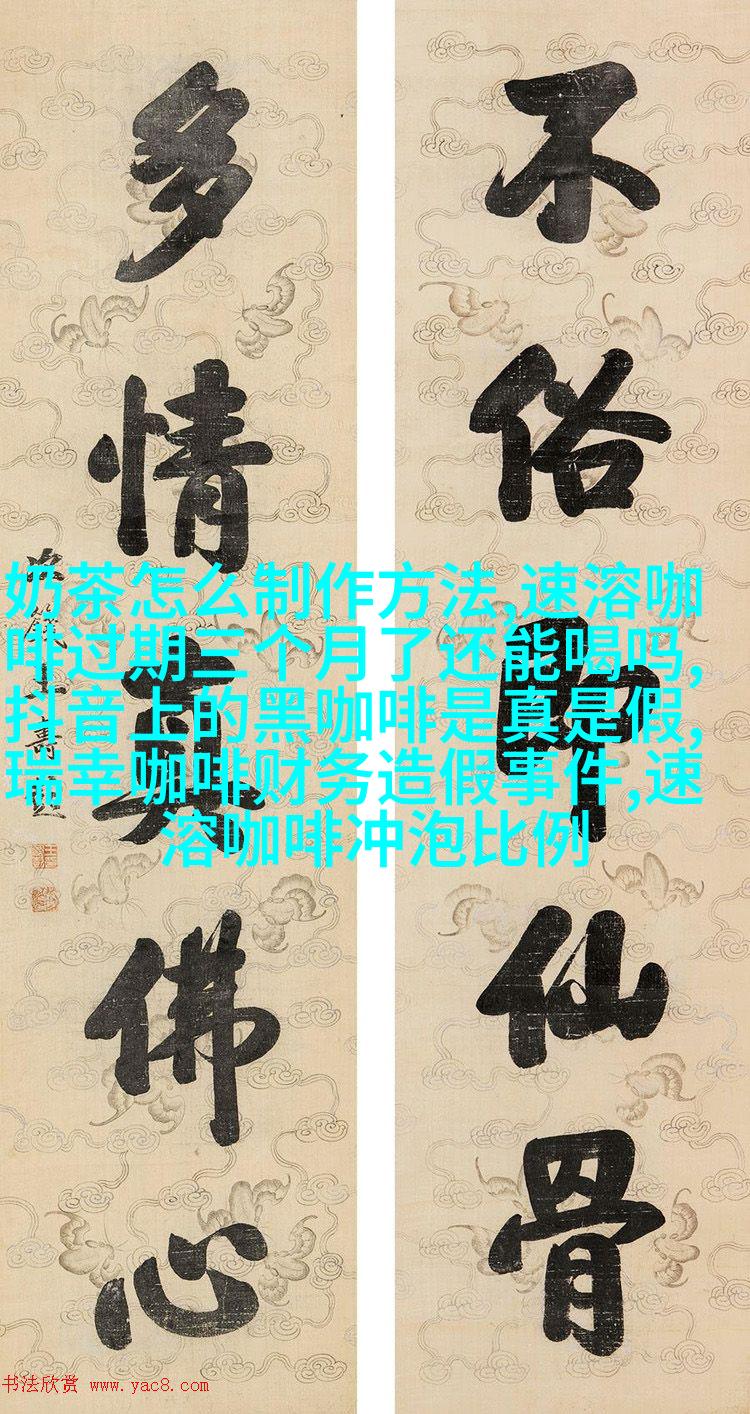 不俗即仙骨
多情真佛心
奶茶怎么制作方法,速溶咖
啡过期三个月了还能喝吗,
抖音上的黑咖啡是真是假,
瑞幸咖啡财务造假事件,速
溶咖啡冲泡比例
书法欣赏 www.yac8.com